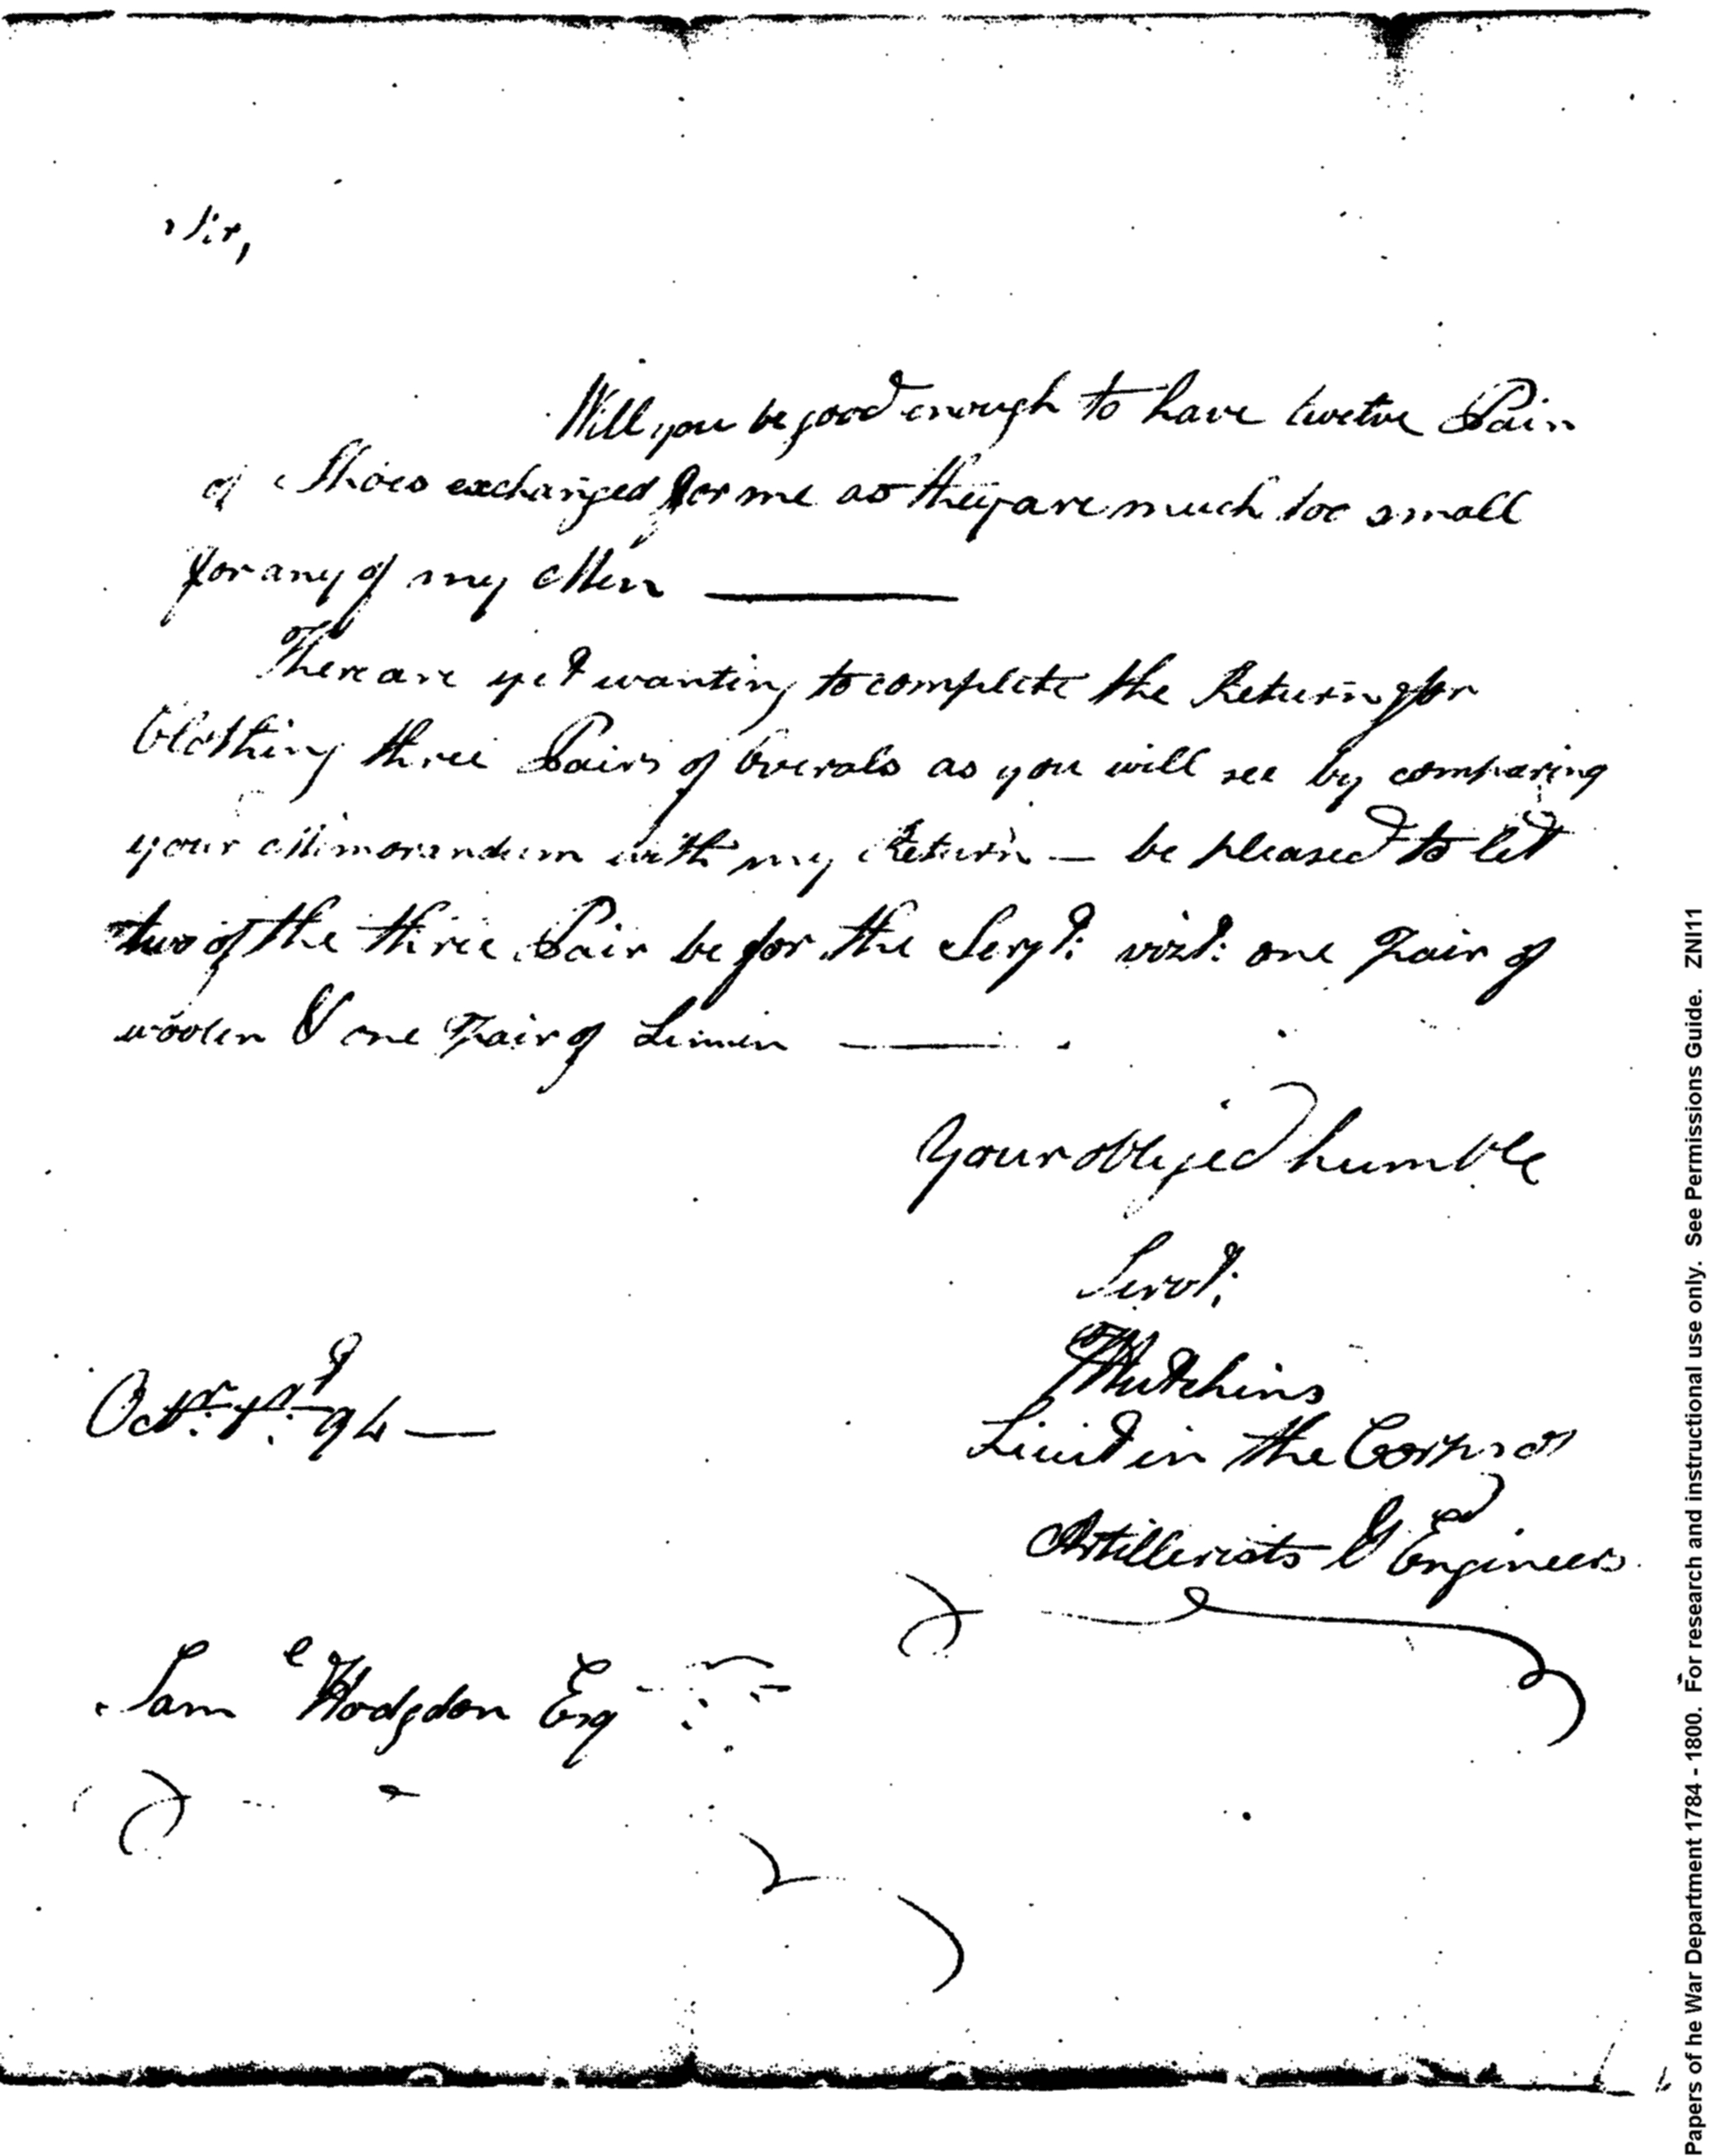 Sir,
Will you be good enough to have twelve Pair
of Shoes exchanged for me as they are much too small
for any of my Men ———
There are yet wanting to complete the Return for
Clothing three Pairs of Overals as you will see by comparing
your Memorandum with my Return — be pleased to let
two of the three Pair be for the Sergt: vizt: one Pair of
woolen & one Pair of Linnen ———.
Your obliged humble
Servt:
Hutchins
Lieut in the Corps of
Artillerists & Engineers
Octr. 1st. 94 —
Saml Hodgdon Esq
Papers of he War Department 1784 - 1800. For research and instructional use only. See Permissions Guide. ZNI11